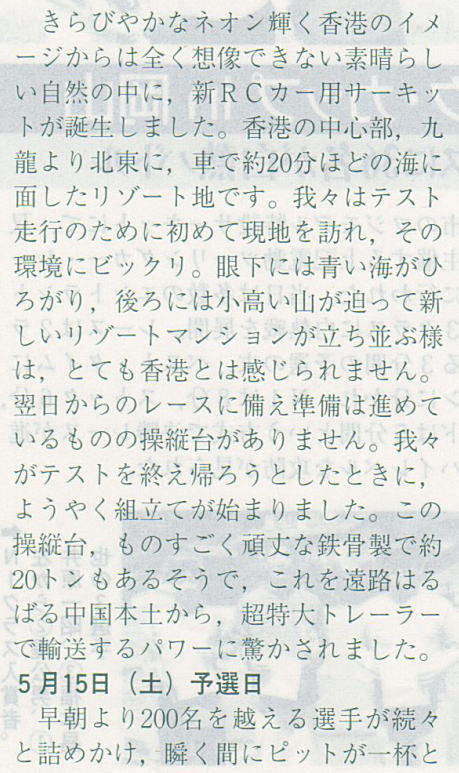 きらびやかなネオン輝く香港のイメ
ージからは全く想像できない素晴らし
い自然の中に，新ＲＣカー用サーキッ
トが誕生しました。香港の中心部，九
龍より北東に，車で約20分ほどの海に
面したリゾート地です。我々はテスト
走行のために初めて現地を訪れ，その
環境にビックリ。眼下には青い海がひ
ろがり，後ろには小高い山が迫って新
しいリゾートマンションが立ち並ぶ様
は，とても香港とは感じられません。
翌日からのレースに備え準備は進めて
いるものの操縦台がありません。我々
がテストを終え帰ろうとしたときに，
ようやく組立てが始まりました。この
操縦台，ものすごく頑丈な鉄骨製で約
20トンもあるそうで，これを遠路はる
ばる中国本土から，超特大トレーラー
で輸送するパワーに驚かされました。
５月15日（土）予選日
早朝より200名を越える選手が続々
と詰めかけ，瞬く間にピットが一杯と